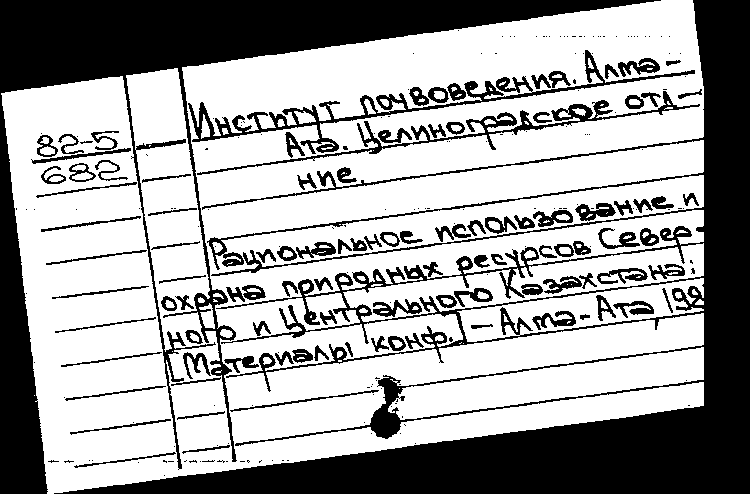 82-5
682
Институт почвоведения. Алма-
Ата. Целиноградское отд-
ние.
Рациональное использование и
охрана природных ресурсов Север-
ного и Центрального Казахстана:
[Материалы конф.] - Алма-Ата, 198